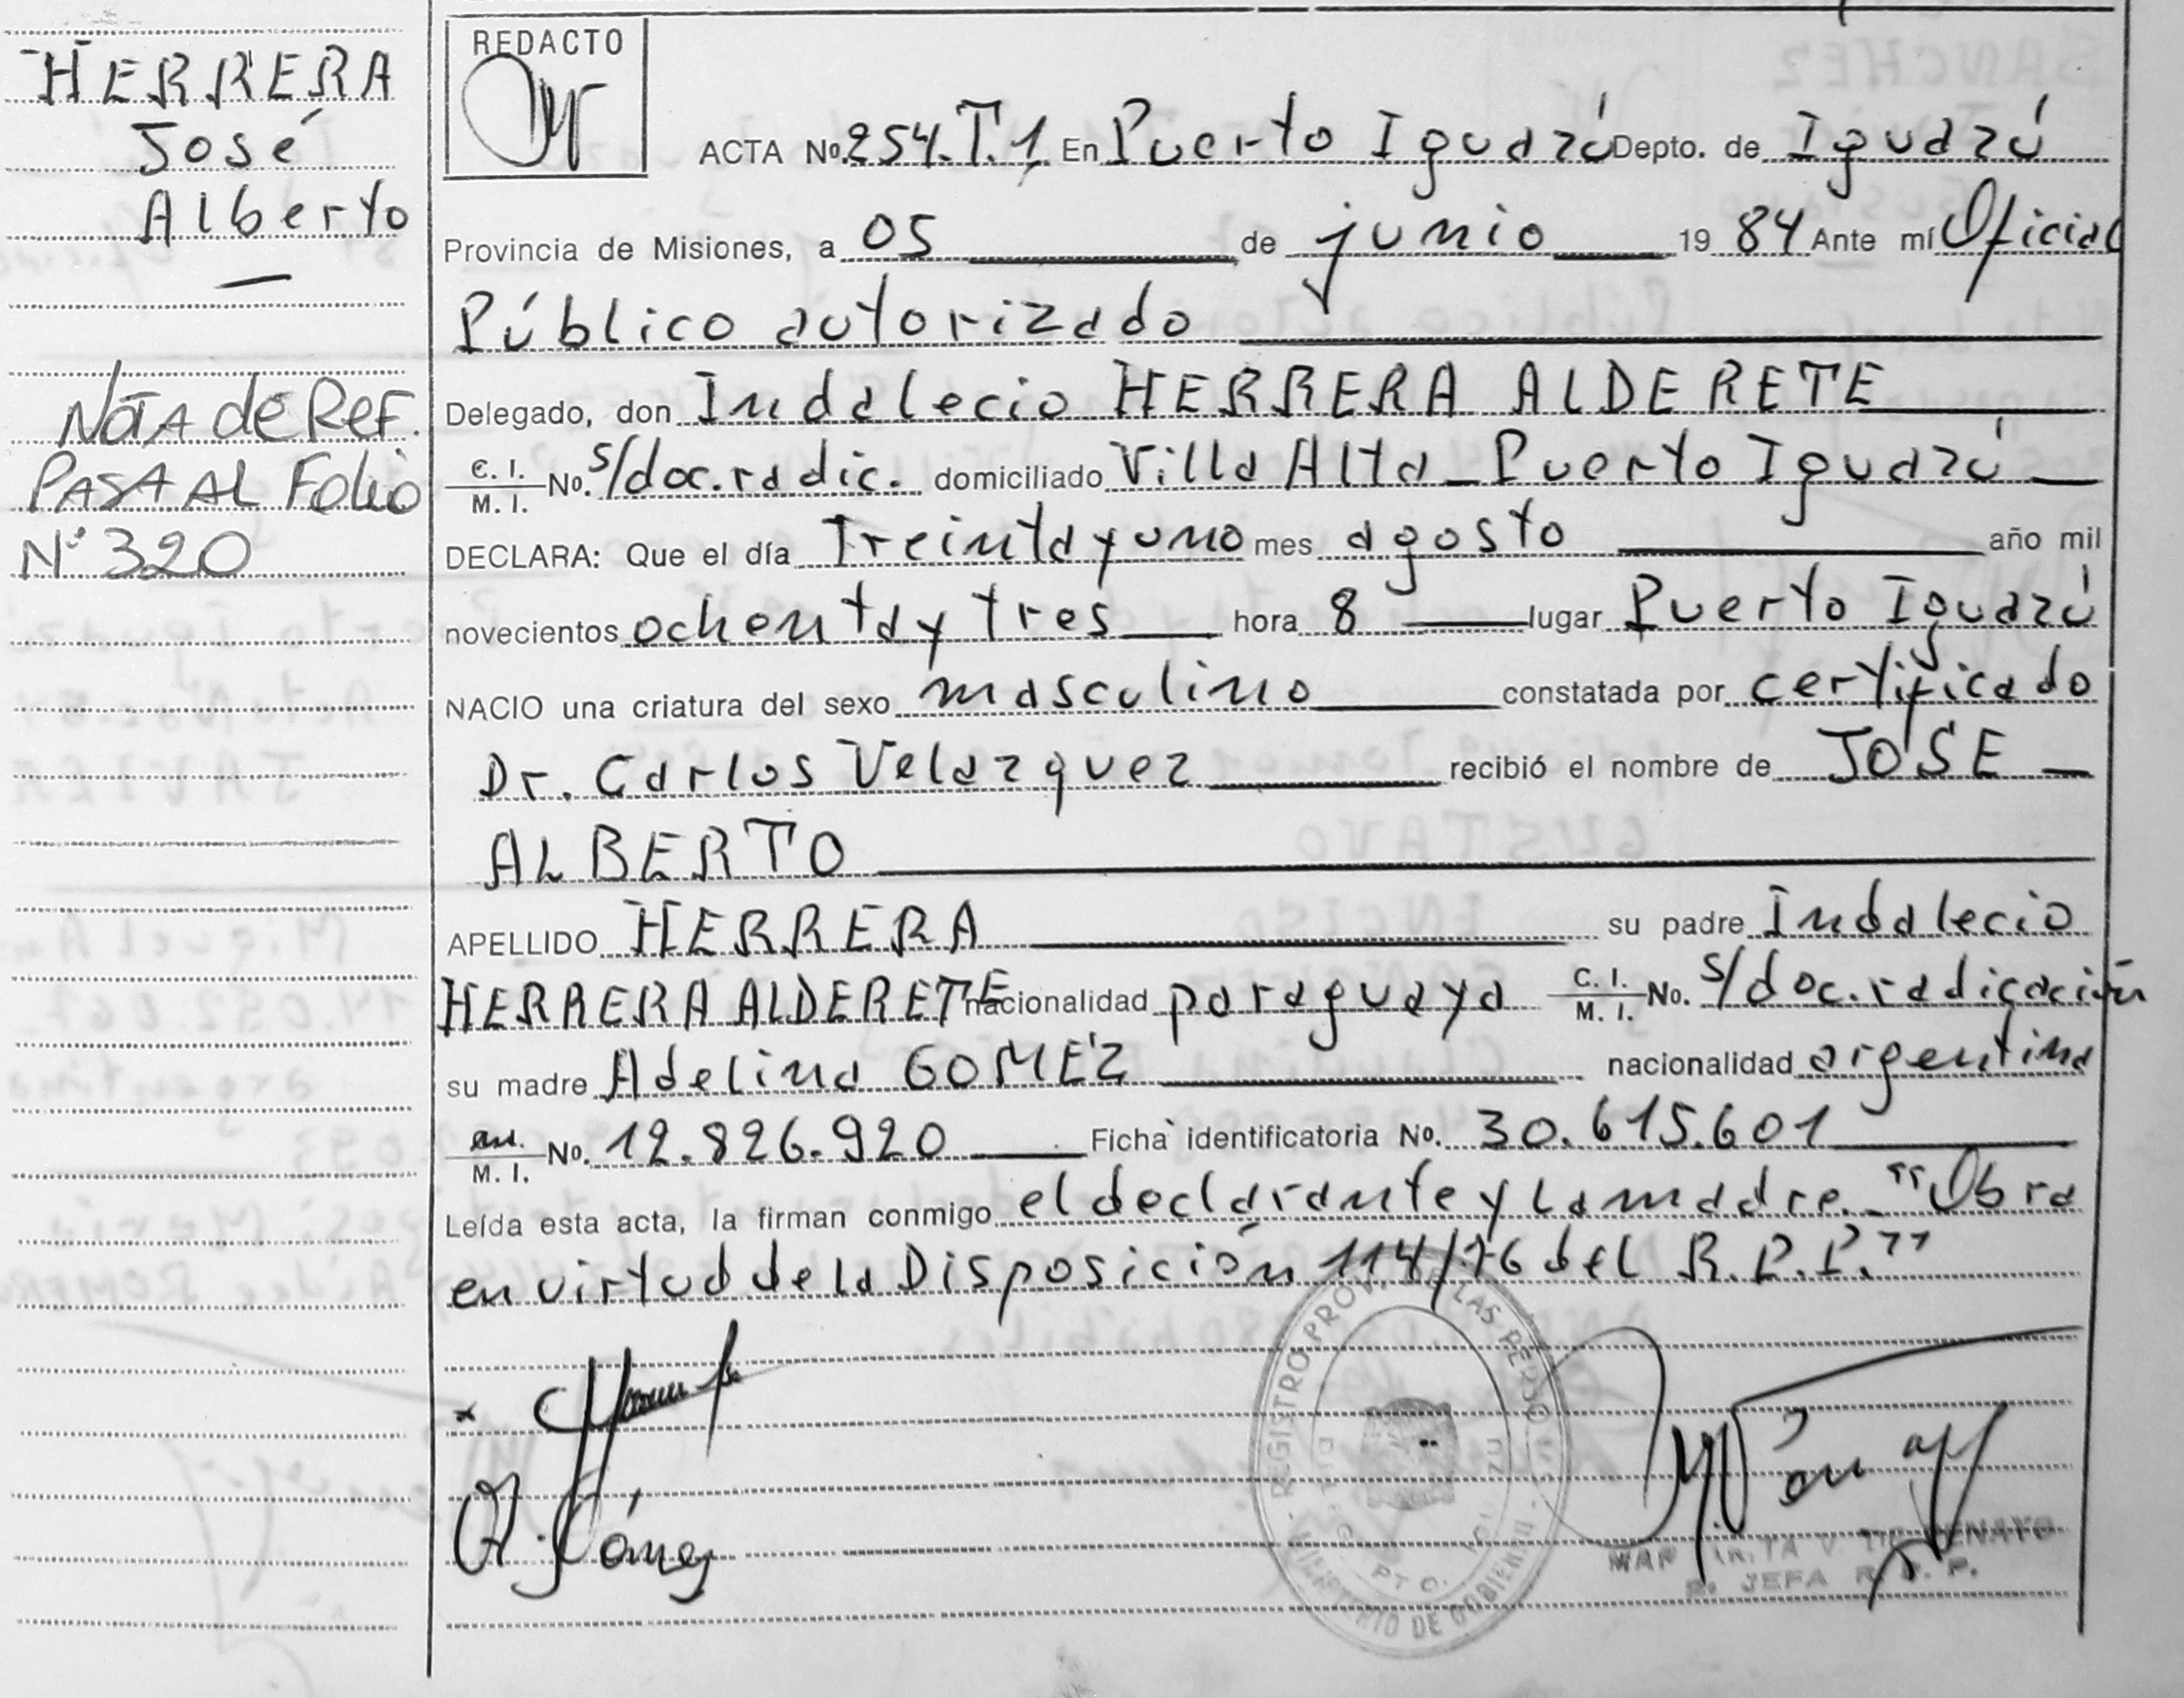 HERRERA
José
Alberto
—
NOTA de REF.
PASA AL Folio
N° 320
REDACTO
ACTA No. 254.T.1 En Puerto Iguazú Depto. de Iguazú
Provincia de Misiones, a 05 de junio 19 84 Ante mí Oficial
Público autorizado
Delegado, don Indalecio HERRERA ALDERETE
C. I. / M. I. No. s/doc.radic. domiciliado Villa Alta - Puerto Iguazú —
DECLARA: Que el día Treinta y uno mes agosto año mil
novecientos ochenta y tres hora 8 lugar Puerto Iguazú
NACIO una criatura del sexo masculino constatada por certificado
Dr. Carlos Velazquez recibió el nombre de JOSE —
ALBERTO
APELLIDO HERRERA su padre Indalecio
HERRERA ALDERETE nacionalidad paraguaya C. I. / M. I. No. s/doc.radicación
su madre Adelina GOMEZ nacionalidad argentina
M. I. No. 12.826.920 Ficha identificatoria No. 30.615.601
Leída esta acta, la firman conmigo el declarante y la madre. - "Obra
en virtud de la Disposición 114/76 del R.P.P."
A. Gómez
REGISTRO PROV. LAS PERSO
MINISTERIO DE GOBIERNO
JEFA